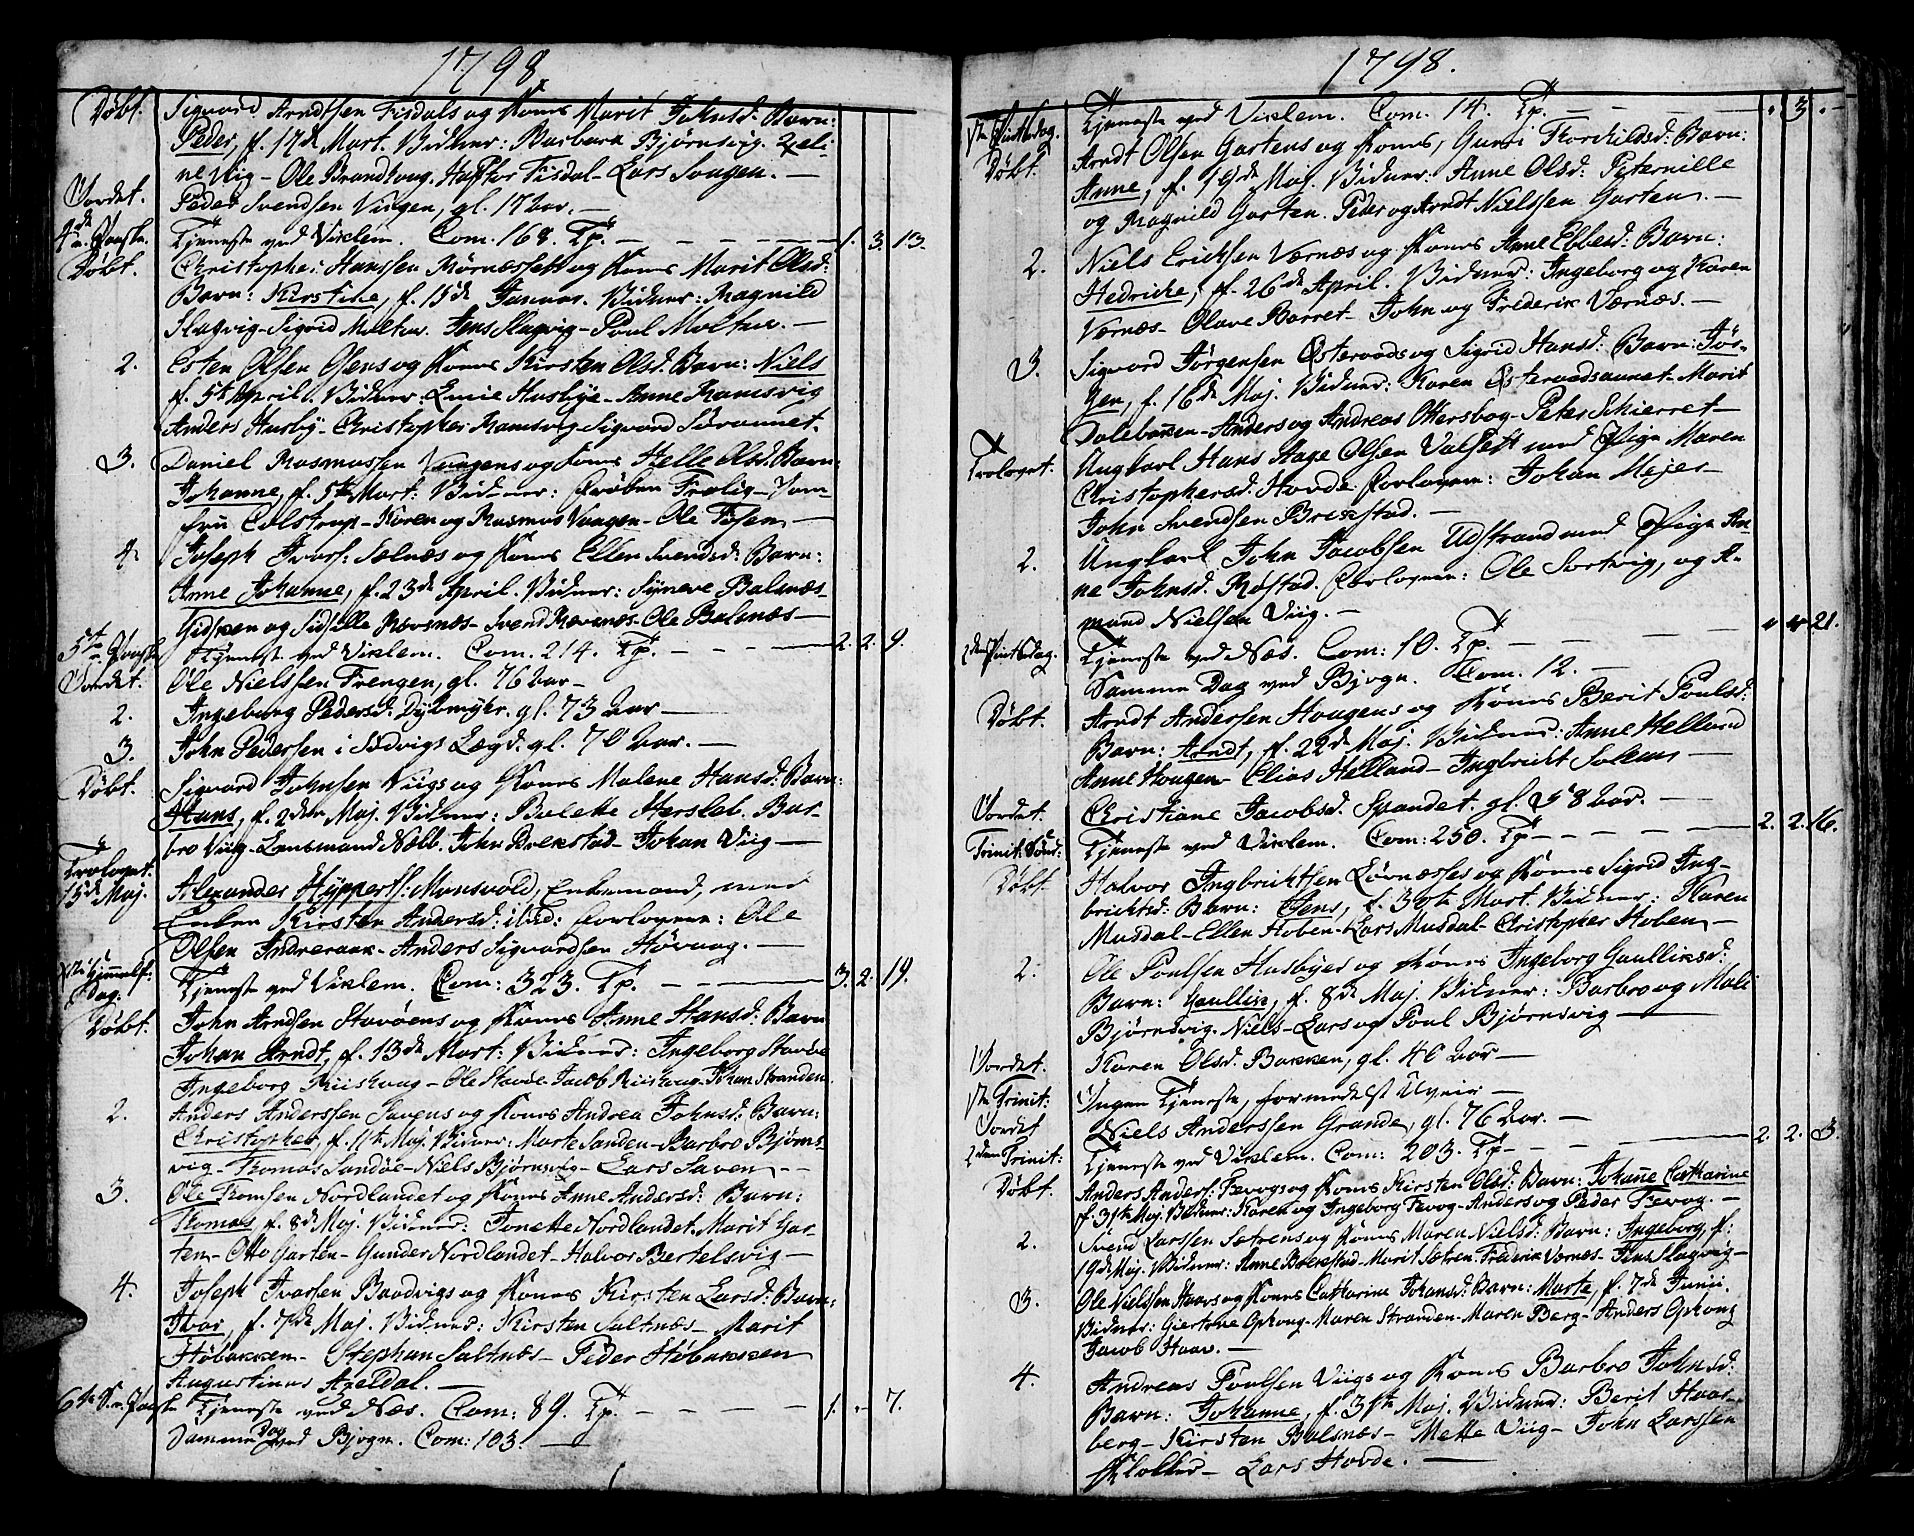 1798.
Døbt. Sigvard Arndtsen Fisdals og Kones Marit Johnsd: Barn:
Peder, f. 17de Mart. Vidner: Barbara Bjørnsvig.
ne Viig - Ole Brandhoug. Haftor Fisdal - Lars Saugen. -
Jordet. Peder Svendsen Viigen, gl. 17 Aar. -
4de S. Paaske. Tjeneste ved Viklem. Com. 168. Tp. - 1. 3. 13.
Døbt. Christopher Hanssen Mørnessett og Kones Marit Olsd:
Barn: Kirstine, f. 15de Januar. Vidner: Magnild
Slagvig - Sigrid Moltur. Jens Slagvig - Poul Moltur. -
2. Esten Olsen Osens og Kones Kirsten Olsd. Barn: Niels
f. 5te April. Vidner: Husbye - Anne Ramsvig
Anders Husby - Christopher Ramsvig Sigvard
3. Daniel Rasmussen og Kones Helle Olsd. Barn:
Johanne, f. 5te Mart: Vidner: Frøken Frølig - Jom-
fru Colstrup - Karen og Rasmus Vaagen - Ole Fosen -
4. Joseph Ivars: Selnæs og Kones Ellen Svendsd: Barn:
Anne Johanne, f. 23de April. Vidner: Synneve Balsnæs -
Gidsken og Sidselle Ravsnæs - Svend Ravsnæs - Ole Balsnæs -
5te S. Paaske Tjeneste ved Viklem. Com. 214. Tp. - 2. 2. 9.
Jordet. Ole Nielsen Frengen, gl. 76 Aar -
2. Ingeborg Pedersd: Dybmyr. gl. 73 Aar -
3. John Pedersen i Lægd. gl. 70 Aar. -
Døbt. Sigvard Johnsen Viigs og Kones Malene Hansd: Barn:
Hans, f. 2den Maj. Vidner: Bolette Hersleb. Bar-
bro Viig - Lensmand Nøbb. John Brekstad - Johan Viig -
Trolovet.
15de Maj. Alexander Hypperts: Monsvold, Enkemand, med
Enken Kirsten Andersd: ibid: forlovere: Ole
Olsen Indreraak - Anders Sigvardsen Høvaag. -
Xsti Himmelf: Dag. Tjeneste ved Viklem. Com: 323. Tp. - 3. 2. 19.
Døbt. John Arndsen Stavøens og Kones Anne Hansd: Barn
Johan Arndt, f. 13de Mart: Vidner: Ingeborg Stavøe
Ingeborg Riishaug - Ole Stavøe Jacob Riishaug. Johan Stranden.
2. Anders Anderssen Savens og Kones Andrea Johnsd: Barn:
Christopher, f. 11te Maj. Vidner: Marte Sanden - Barbro Bjørns-
vig - Thomas Sandøe - Niels Bjørnsvig - Lars Saven -
3. Ole Tromsen Nordlandet og Kones Anne Andersd: Barn:
Thomas f. 8de Maj. Vidner: Tonette Nordlandet. Marit Gar-
ten - Otto Garten - Gunder Nordlandet - Halvor Bertelsvig -
4. Joseph Ivarsen Baadvigs og Kones Kirsten Larsd: Barn:
Ivar, f. 7de Maj. Vidnes: Kirsten Saltnæs - Marit
Høbakken - Stephan Saltnæs - Peder Høbakken
Augustinus Axeldal. -
6te S. e. Paaske Tjeneste ved Næs. Com: 89. Tp. - 1. - 7.
Samme Dag ved Bjogn. Com: 103. -
1798.
1ste Pintsedag. Tjeneste ved Viklem. Com. 14. Tp. - 3. -
Døbt. Arndt Olsen Gartens og Kones, Guru Torchildsd: Barn:
Anne, f. 19de Maj. Vidner: Anne Olsd: Peternille
og Magnild Garten. Peder og Arndt Nielssen Garten. -
2. Niels Ericksen Værnæs og Kones Anne Ebbesd: Barn:
Hedricke, f. 26de April. Vidner: Ingeborg og Karen
Værnæs - Olave Borret - John og Frederik Værnæs. -
3. Sigvard Jørgensen Østeraads og Sigrid Hansd: Barn: Jør-
gen, f. 16de Maj. Vidner: Karen Østeraadsaunet - Marit
Dalebakken - Anders og Andreas Ottersbog - Peter Schierret -
Trolovet. Ungkarl Hans Aage Olsen Valsett med Pige Maren
Christophersd. Hovde. Forlovere: Johan Mejer -
John Svendsen Brekstad. -
2. Ungkarl John Jacobsen Udstrand med Pige An-
ne Johnsd. Røstad. Forlovere: Ole Sortvig, og A-
mund Nielsen Viig. -
2den Pintsedag. Tjeneste ved Næs. Com: 10. Tp. - 21.
Samme Dag ved Bjogn. Com. 12. -
Døbt. Arndt Andersen Hougens og Kones Berit Poulsd:
Barn: Arndt, f. 22de Maj. Vidner: Anne Helland
Anne Hougen - Elias Helland - Ingbricht Solem -
Jordet. Christiane Jacobsd. Spandet. gl. 58 Aar. -
Trinit. Sønd: Tjeneste ved Viklem. Com: 250. Tp - 2. 2. 16.
Døbt. Halvor Ingbrichtsen Lørnesses og Kones Sigrid Ing-
brichtsd: Barn: Jens, f. 30te Mart. Vidner: Karen
Musdal - Ellen Hoben - Lars Musdal - Christopher Hoben -
2. Ole Poulsen Husbyes og Kones Ingeborg Gaulliksd:
Barn: Gaullik, f. 8de Maj. Vidner: Barbro og Mali
Bjørnsvig. Niels - Lars og Poul Bjørnsvig -
Jordet. Karen Olsd. Bakken, gl. 46 Aar -
1ste Trinit: Ingen Tjeneste, formedelst Uveir -
Jordet Niels Anderssen Grande, gl. 76 Aar. -
2den Trinit: Tjeneste ved Viklem. Com: 203. Tp - 2. 2. 3.
Døbt. Anders Anders: Fevogs og Kones Kirsten Olsd: Barn: Johane Catharine
f. 31te Maj. Vidner: Karen og Ingeborg Fevog - Anders og Peder Fevog. -
2. Svend Larssen Sætrens og Kones Maren Nielsd: Barn: Ingeborg, f:
19de Maj. Vidner: Anne Brekstad - Marit Sætren - Frederik Værnæs - Jens Slagvig -
3. Ole Nielssen Haars og Kones Catharine Johansd: Barn: Marte, f. 7de Junii.
Vidner: Giertrue Ophoug - Maren Stranden - Maren Berg - Anders Ophoug
Jacob Haar. -
4. Andreas Poulsen Viigs og Kones Barbro Johnsd:
Barn: Johanne, f. 31te Maj. Vidner: Berit Haar-
berg - Kirsten Balsnæs - Mette Viig - John Larssen
Klokker - Lars Hovde. -